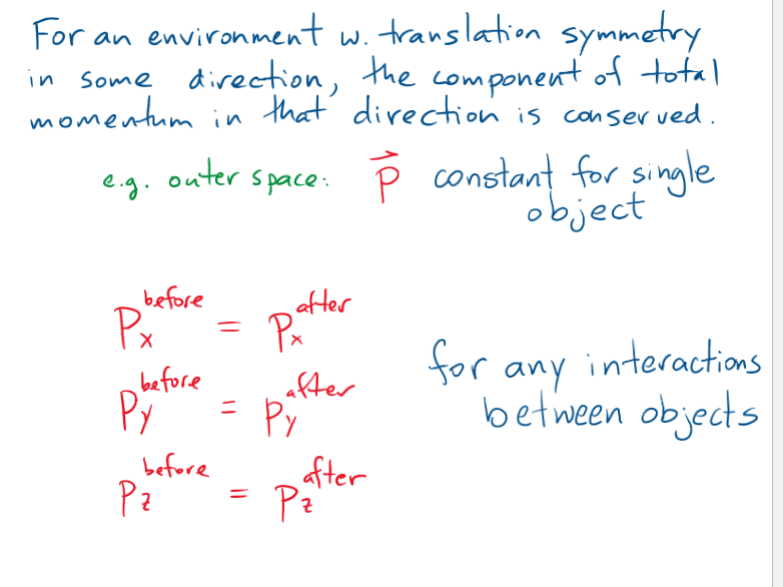 For an environment w. translation symmetry
in some direction, the component of total
momentum in that direction is conserved.
e.g. outer space: P⃗ constant for single
object
Px^before = Px^after
Py^before = Py^after
Pz^before = Pz^after
for any interactions
between objects